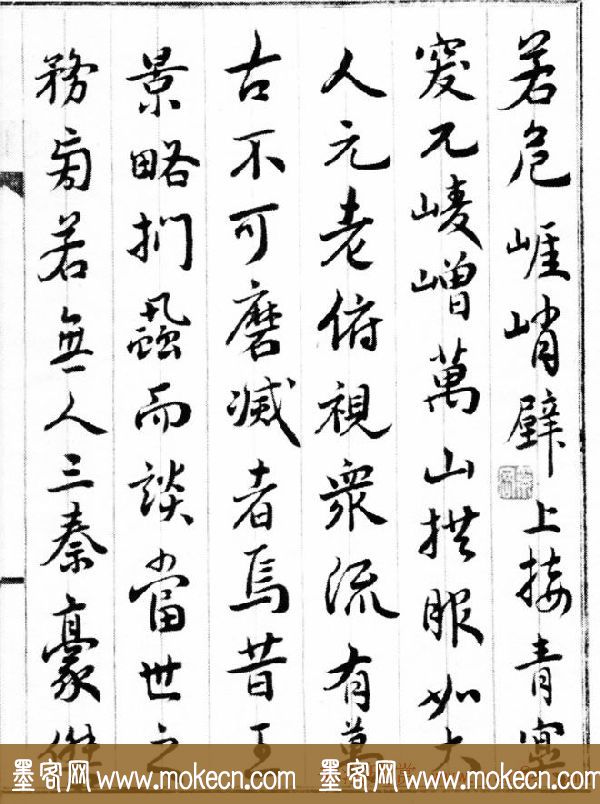 若危崕峭壁上接青冥
突兀崚嶒萬山拱服如大
人元老俯視衆流有萬
古不可磨滅者焉昔王
景略捫蝨而談當世之
務旁若無人三秦豪傑
墨客网 www.mokecn.com 墨客网 www.mokecn.com